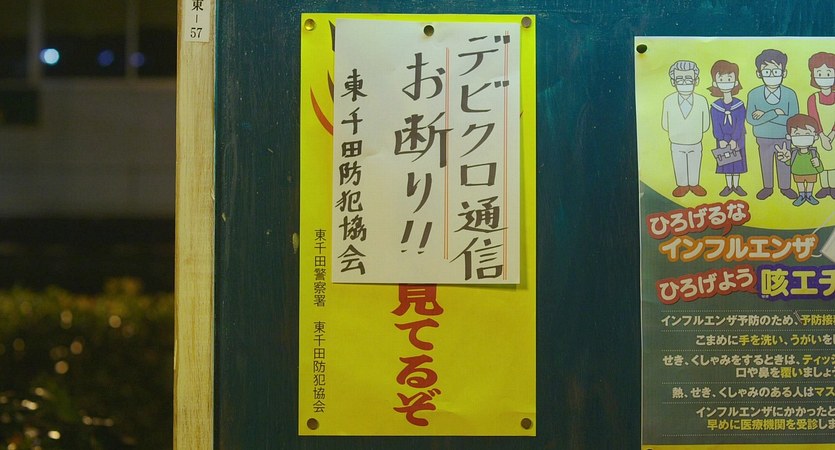 東-57
デビクロ通信
お断り!!
東千田防犯協会
見てるぞ
東千田警察署 東千田防犯協会
ひろげるな
インフルエンザ
ひろげよう 咳エチ
インフルエンザ予防のため、予防接
こまめに手を洗い、うがいを
せき、くしゃみをするときは、ティッ
口や鼻を覆いましょ
熱、せき、くしゃみのある人はマス
インフルエンザにかかったと
早めに医療機関を受診しま